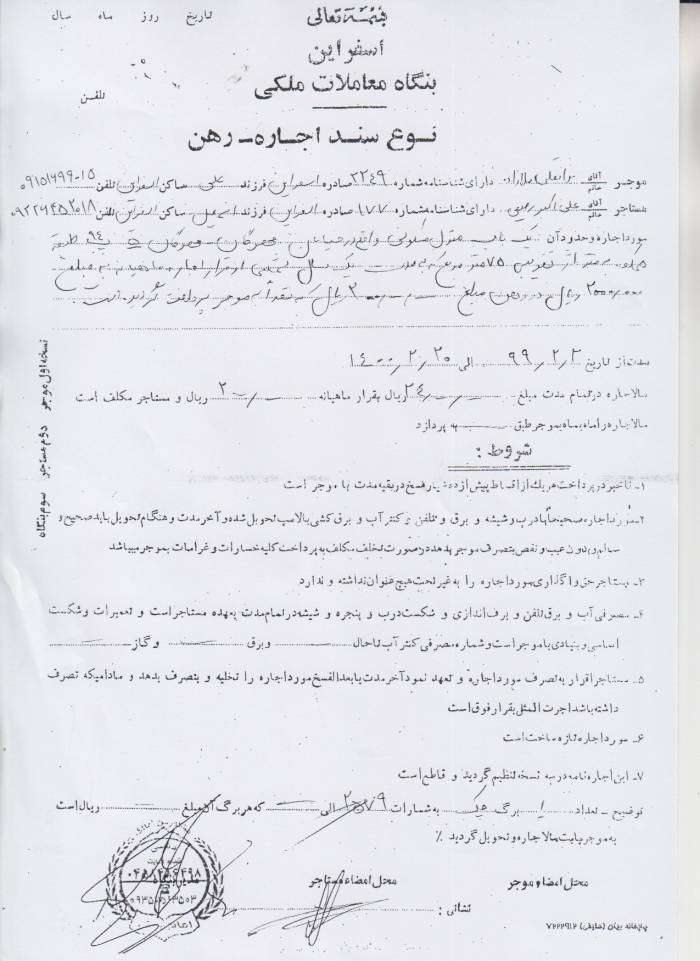 بسمه تعالی
تاریخ روز ماه سال
اسفراین
بنگاه معاملات ملکی
تلفن
نوع سند اجاره - رهن
موجر آقای خانم دارای شناسنامه شماره ۲۲۴۹ صادره اسفراین فرزند علی ساکن اسفراین تلفن
مستاجر آقای خانم علی اکبر دارای شناسنامه شماره ۱۷۷ صادره اسفراین فرزند ساکن اسفراین تلفن
مورد اجاره و حدود آن یک باب منزل مسکونی واقع در خیابان مهرگان - مهرگان
متر مربع یک سال شمسی از قرار اجاره ماهیانه مبلغ
ریال و در رهن مبلغ ریال که نقداً به موجر پرداخت گردیده است
مدت از تاریخ ۹۹/۲/۲ الی ۱۴۰۰/۲/۲۰
مال الاجاره در تمام مدت مبلغ ریال بقرار ماهیانه ریال و مستاجر مکلف است
مال الاجاره را ماه بماه بموجر طبق به پردازد
شروط :
۱- تاخیر در پرداخت هر یک از اقساط بیش از ده روز خیار فسخ در بقیه مدت با موجر است
۲- مورد اجاره صحیحاً با درب و شیشه و برق و تلفن و کنتر آب و برق کشی با لامپ تحویل شده و آخر مدت و هنگام تحویل باید صحیح و
سالم و بدون عیب و نقص بتصرف موجر بدهد در صورت تخلف مکلف به پرداخت کلیه خسارات و غرامات بموجر میباشد
۳- مستاجر حق واگذاری مورد اجاره را به غیر تحت هیچ عنوان نداشته و ندارد
۴- مصرفی آب و برق تلفن و برف اندازی و شکست درب و پنجره و شیشه در تمام مدت به عهده مستاجر است و تعمیرات و شکست
اساسی و بنیادی با موجر است و شماره مصرفی کنتر آب تا حال و برق و گاز
۵- مستاجر اقرار به تصرف مورد اجاره و تعهد نمود آخر مدت یا بعد الفسخ مورد اجاره را تخلیه و بتصرف بدهد و مادامیکه تصرف
داشته باشد اجرت المثل بقرار فوق است
۶- مورد اجاره تازه ساخت است
۷- این اجاره نامه در سه نسخه تنظیم گردید و قاطع است
توضیح - تعداد ۱ برگ چک به شمارات الی که هر برگ آن مبلغ ریال است
به موجر بابت مال الاجاره و تحویل گردید ٪
محل امضاء موجر
محل امضاء مستاجر
نشانی :
نسخه اول موجر دوم مستاجر سوم بنگاه